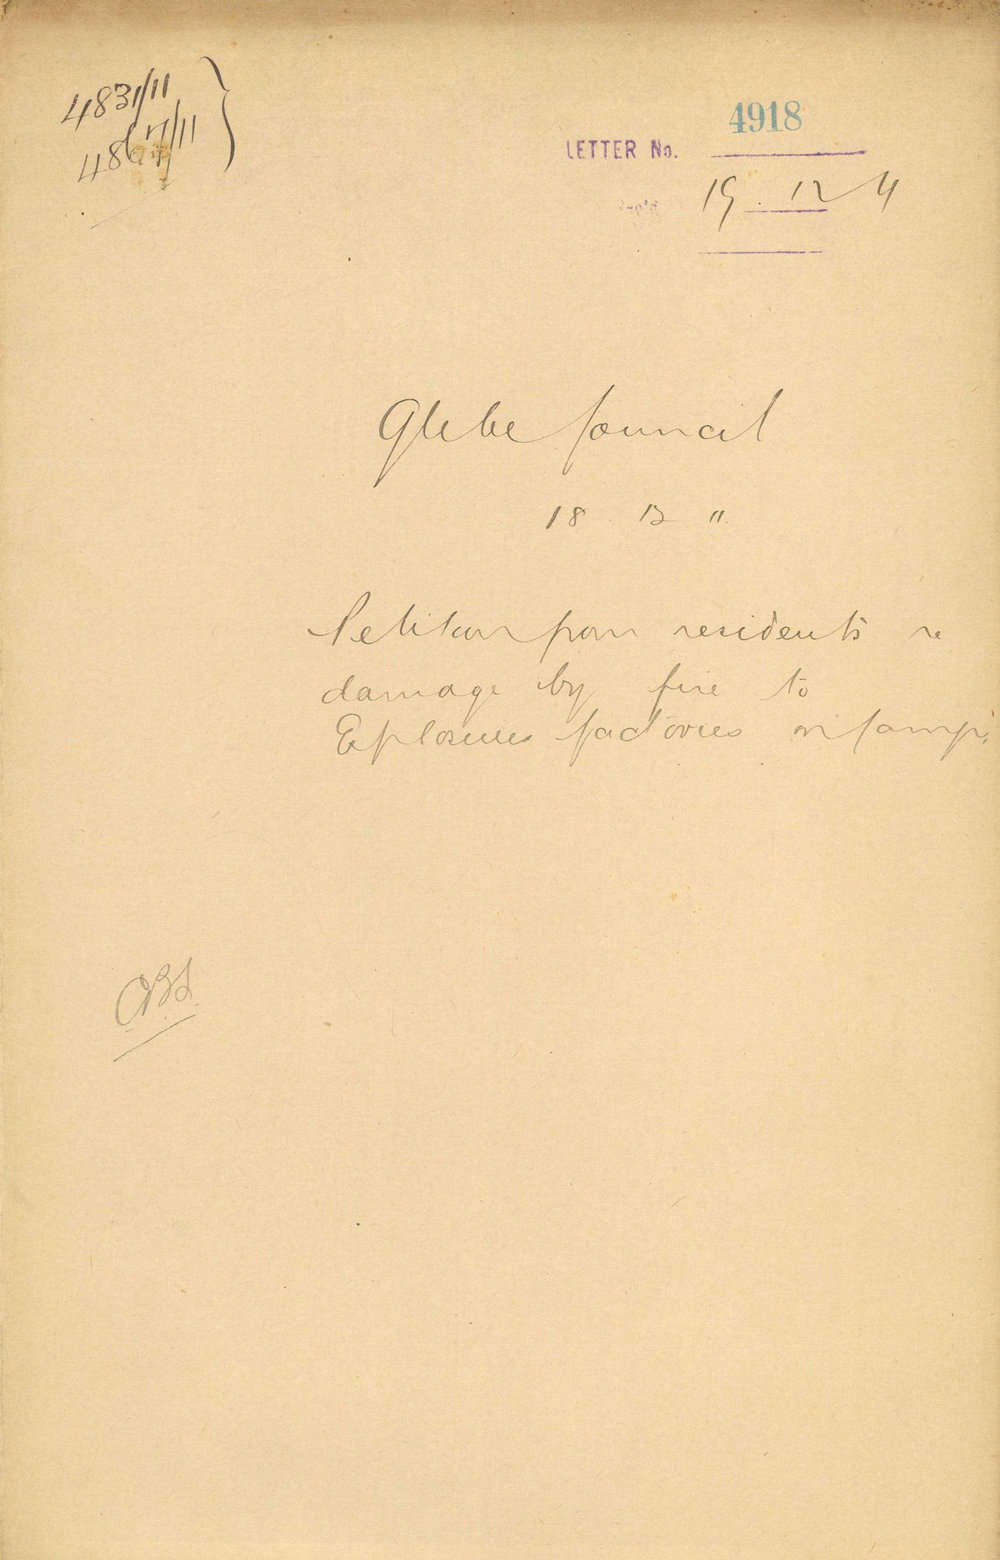 4831/11
4867/11
LETTER No. 4918
Rec'd 19. 12 11
Glebe Council
18. 12 11.
Petition from residents re
damage by fire to
Explosives factories on Camp.